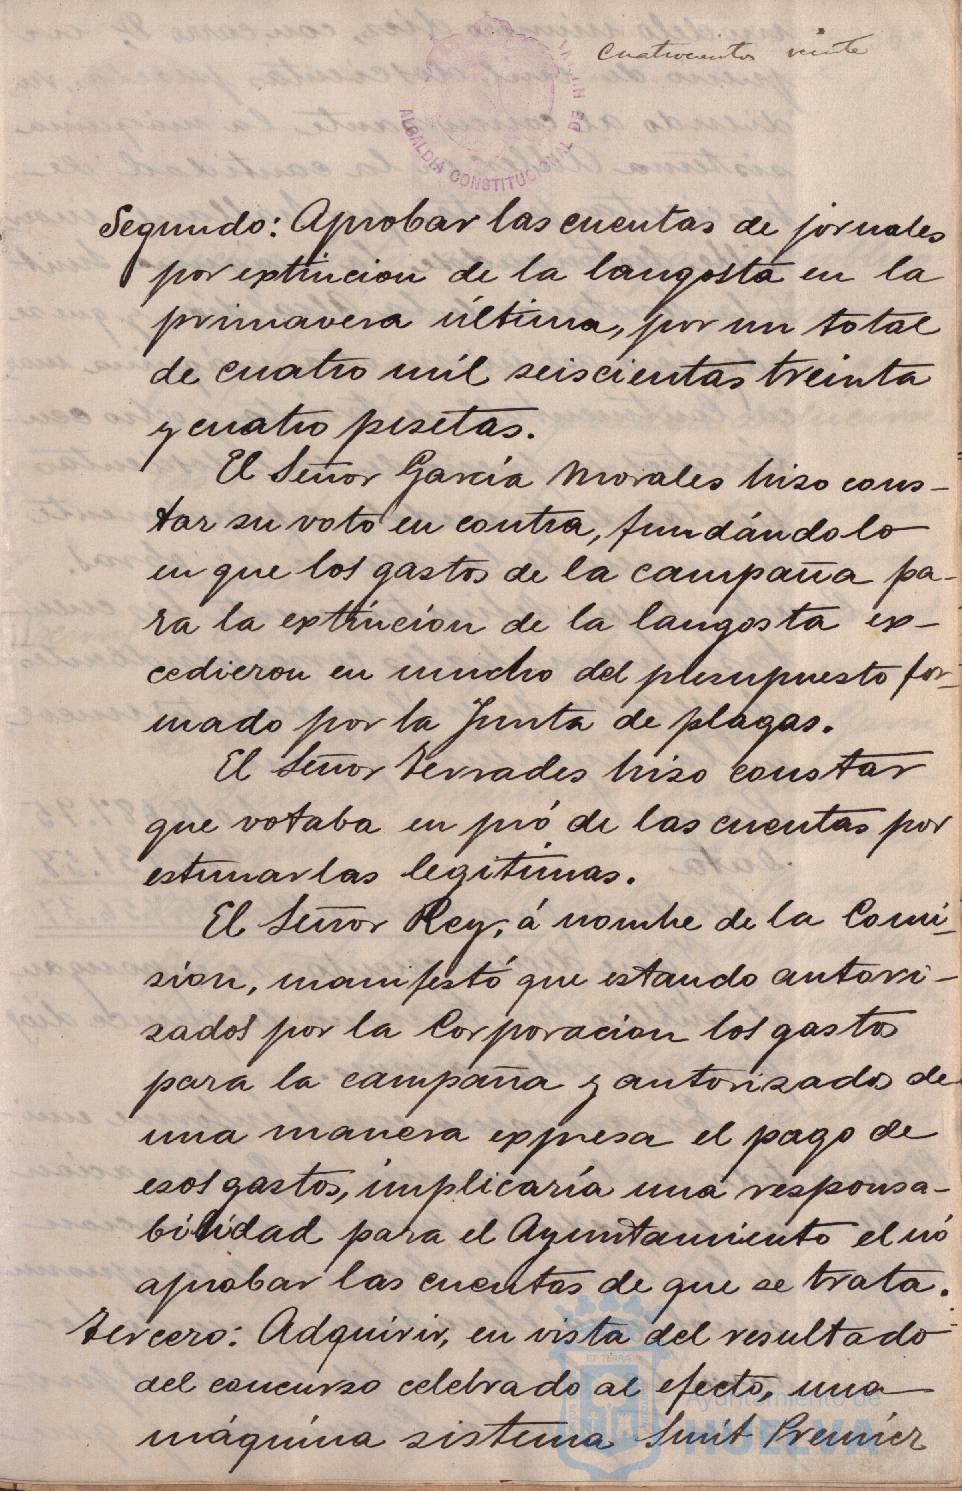 cuatrocientos veinte
ALCALDIA CONSTITUCIONAL DE
Segundo: Aprobar las cuentas de jornales
por extincion de la langosta en la
primavera última, por un total
de cuatro mil seiscientas treinta
y cuatro pesetas.
El Señor García Morales hizo cons-
tar su voto en contra, fundándolo
en que los gastos de la campaña pa-
ra la extincion de la langosta ex-
cedieron en mucho del presupuesto for-
mado por la Junta de plagas.
El Señor Terrades hizo constar
que votaba en pró de las cuentas por
estimarlas legítimas.
El Señor Rey, á nombre de la Comi-
sion, manifestó que estando autori-
zados por la Corporacion los gastos
para la campaña y autorizado de
una manera expresa el pago de
esos gastos, implicaría una responsa-
bilidad para el Ayuntamiento el nó
aprobar las cuentas de que se trata.
Tercero: Adquirir, en vista del resultado
del concurso celebrado al efecto, una
máquina sistema Smit Premier
Ayuntamiento de
HUELVA